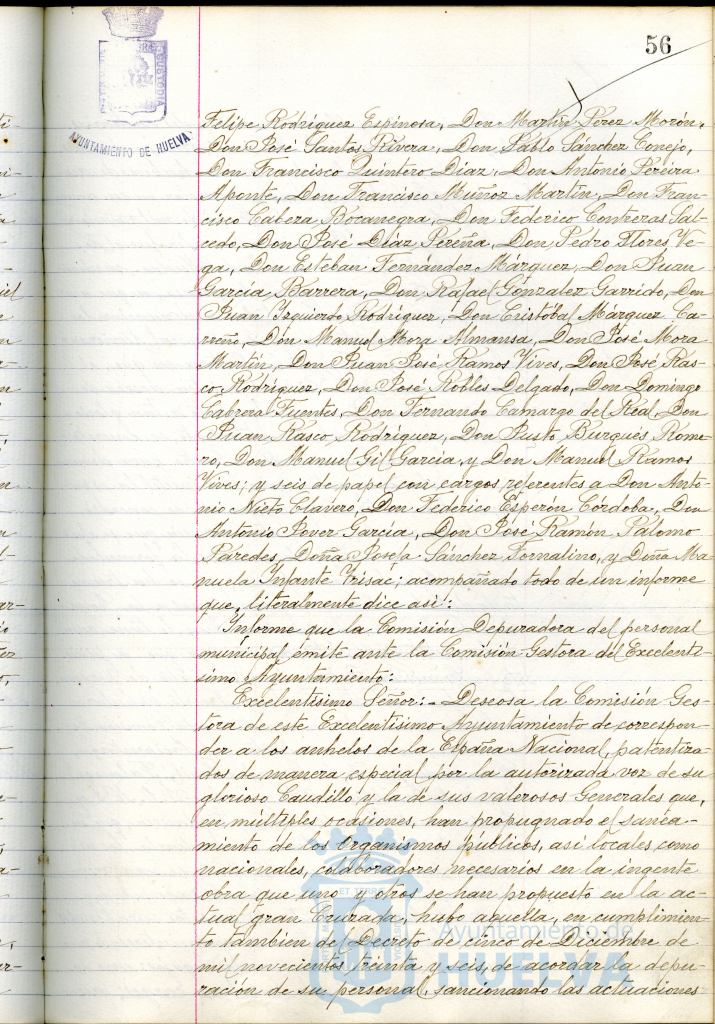 56
AYUNTAMIENTO DE HUELVA
Felipe Rodríguez Espinosa, Don Martín Pérez Morón,
Don José Santos Rivera, Don Pablo Sánchez Conejo,
Don Francisco Quintero Díaz, Don Antonio Pereira
Aponte, Don Francisco Muñoz Martín, Don Fran-
cisco Cabeza Bocanegra, Don Federico Contreras Sal-
cedo, Don José Díaz Pereña, Don Pedro Flores Ve-
ga, Don Esteban Fernández Márquez, Don Juan
García Barrera, Don Rafael González Garrido, Don
Juan Izquierdo Rodríguez, Don Cristóbal Márquez Ca-
rreño, Don Manuel Mora Almansa, Don José Mora
Martín, Don Juan José Ramos Vives, Don José Ras-
co Rodríguez, Don José Robles Delgado, Don Domingo
Cabrera Fuentes, Don Fernando Camargo del Real, Don
Juan Rasco Rodríguez, Don Justo Burgués Rome-
ro, Don Manuel Gil García, y Don Manuel Ramos
Vives; y seis de papel con cargos referentes a Don Anto-
nio Nieto Clavero, Don Federico Esperón Córdoba, Don
Antonio Jover García, Don José Ramón Palomo
Paredes, Doña Josefa Sánchez Tornalino, y Doña Ma-
nuela Infante Yrisac; acompañado todo de un informe
que, literalmente dice así:
Informe que la Comisión Depuradora del personal
municipal emite ante la Comisión Gestora del Excelentí-
simo Ayuntamiento:
Excelentísimo Señor:- Deseosa la Comisión Ges-
tora de este Excelentísimo Ayuntamiento de correspon-
der a los anhelos de la España Nacional, patentiza-
dos de manera especial por la autorizada voz de su
glorioso Caudillo y la de sus valerosos Generales que,
en múltiples ocasiones, han propugnado el sanea-
miento de los organismos públicos, así locales como
nacionales, colaboradores necesarios en la ingente
obra que uno y otros se han propuesto en la ac-
tual gran Cruzada, hubo aquella, en cumplimien-
to también del Decreto de cinco de Diciembre de
mil novecientos treinta y seis, de acordar la depu-
ración de su personal, sancionando las actuaciones
Ayuntamiento de
HUELVA